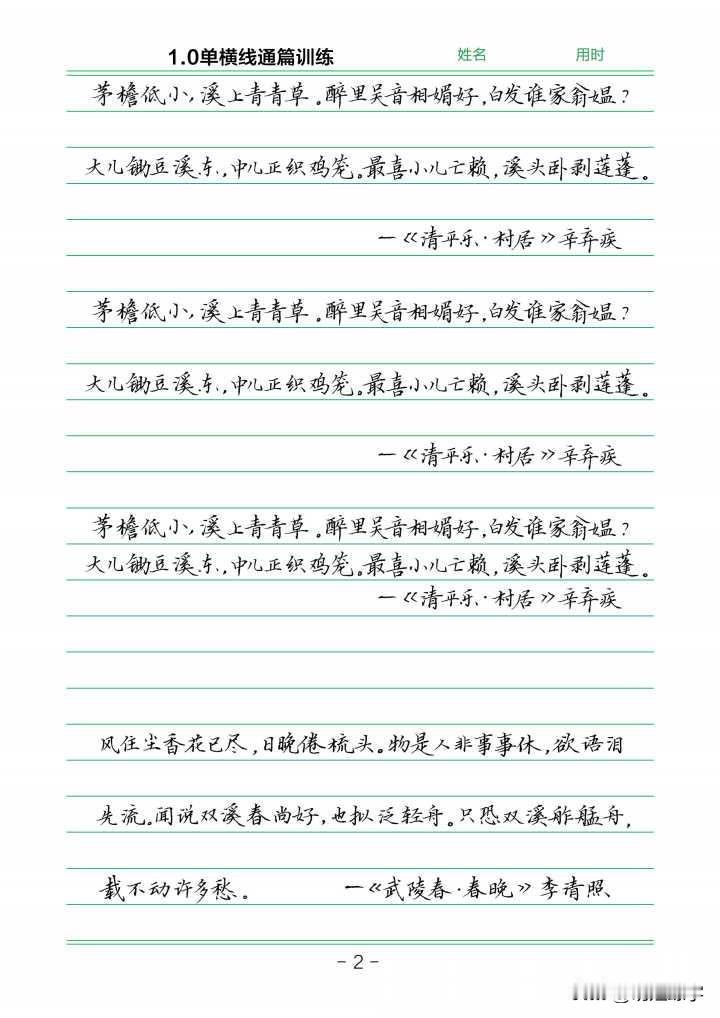 1.0单横线通篇训练 姓名 用时
茅檐低小,溪上青青草。醉里吴音相媚好,白发谁家翁媪?
大儿锄豆溪东,中儿正织鸡笼。最喜小儿亡赖,溪头卧剥莲蓬。
—《清平乐·村居》辛弃疾
茅檐低小,溪上青青草。醉里吴音相媚好,白发谁家翁媪?
大儿锄豆溪东,中儿正织鸡笼。最喜小儿亡赖,溪头卧剥莲蓬。
—《清平乐·村居》辛弃疾
茅檐低小,溪上青青草。醉里吴音相媚好,白发谁家翁媪?
大儿锄豆溪东,中儿正织鸡笼。最喜小儿亡赖,溪头卧剥莲蓬。
—《清平乐·村居》辛弃疾
风住尘香花已尽,日晚倦梳头。物是人非事事休,欲语泪
先流。闻说双溪春尚好,也拟泛轻舟。只恐双溪舴艋舟,
载不动许多愁。 —《武陵春·春晚》李清照、
- 2 -